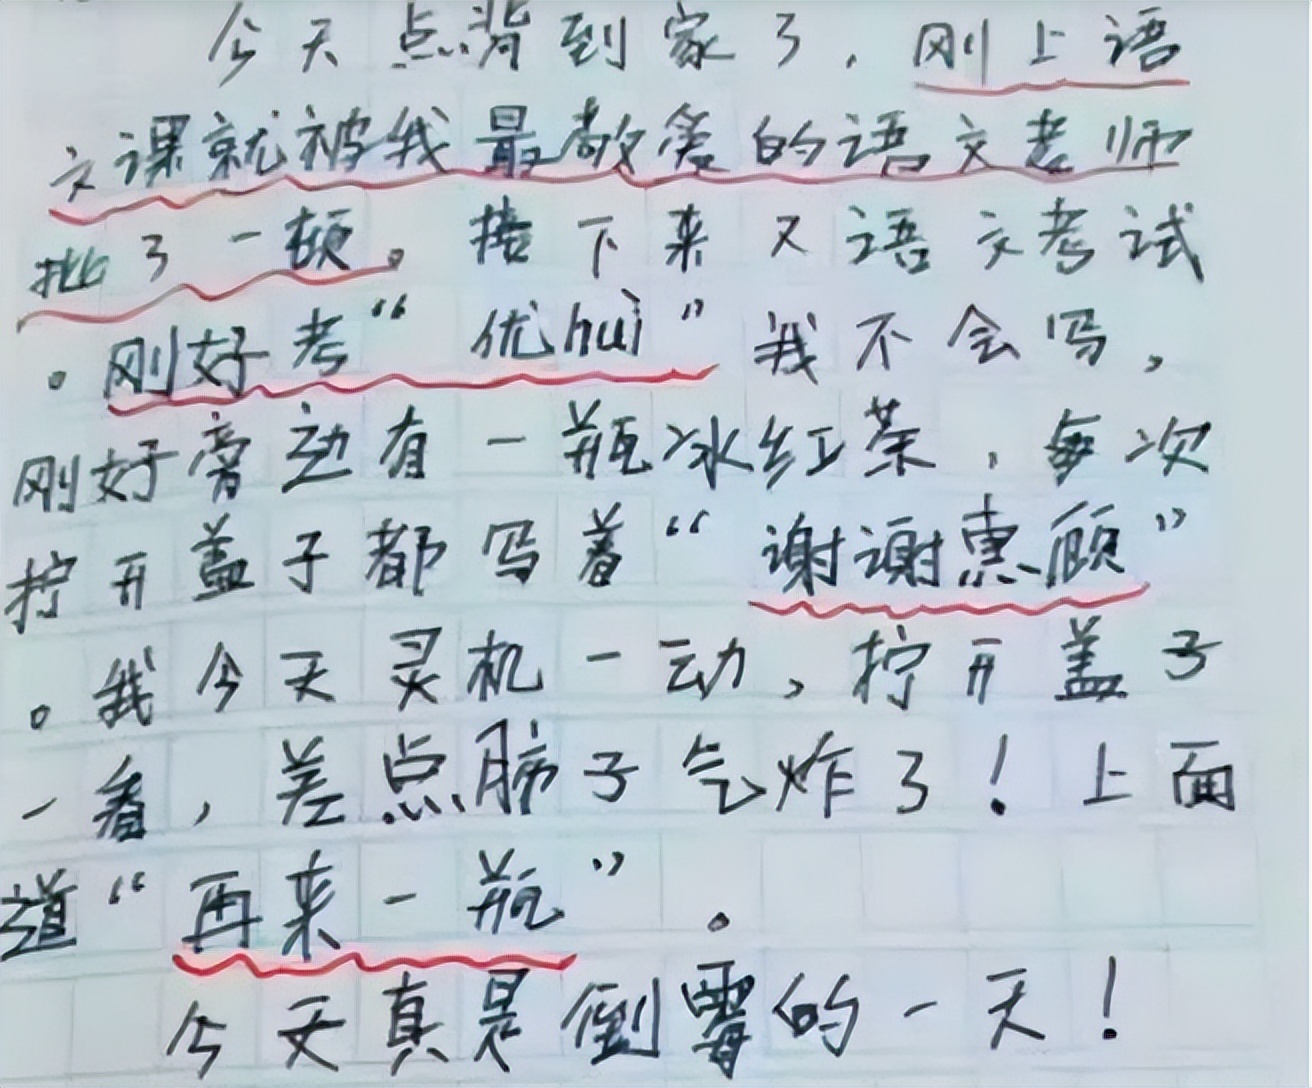 今天点背到家了，刚上语
文课就被我最敬爱的语文老师
批了一顿。接下来又语文考试
。刚好考“优huì”我不会写，
刚好旁边有一瓶冰红茶，每次
拧开盖子都写着“谢谢惠顾”
。我今天灵机一动，拧开盖子
一看，差点肺子气炸了！上面
道“再来一瓶”。
今天真是倒霉的一天！